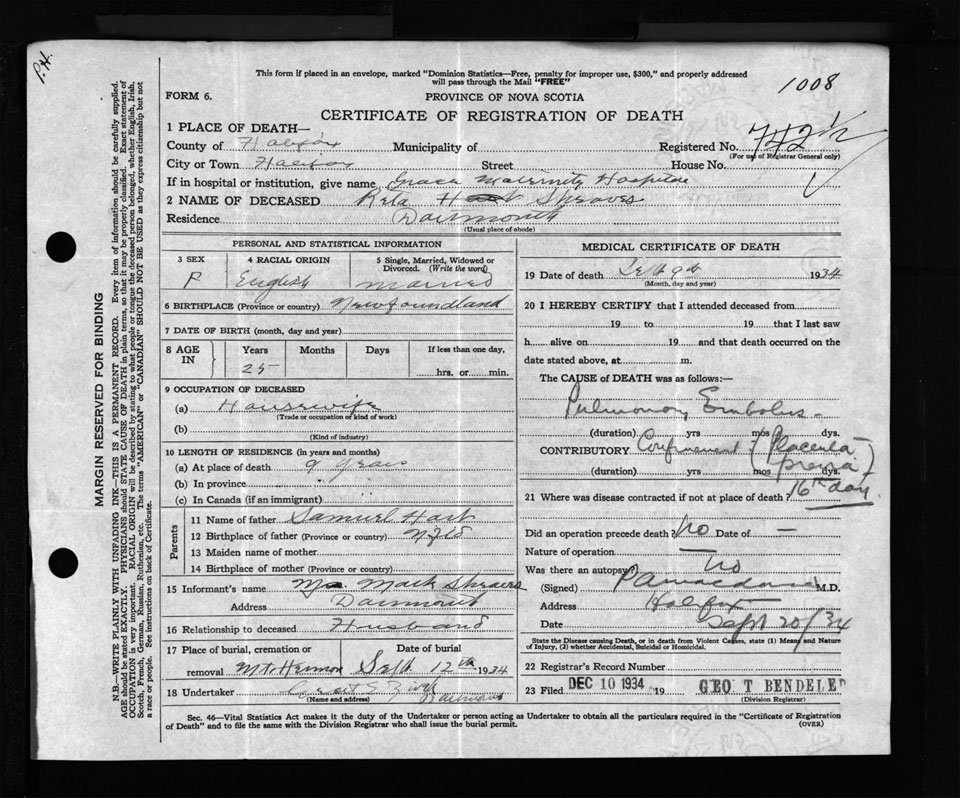 P.H.
This form if placed in an envelope, marked "Dominion Statistics—Free, penalty for improper use, $300," and properly addressed
will pass through the Mail "FREE"
1008
FORM 6.
PROVINCE OF NOVA SCOTIA
CERTIFICATE OF REGISTRATION OF DEATH
1 PLACE OF DEATH—
County of Halifax Municipality of Registered No. 742½
(For use of Registrar General only)
City or Town Halifax Street House No.
If in hospital or institution, give name Grace Maternity Hospital
2 NAME OF DECEASED Reta Hart Shraves
Residence Dartmouth
(Usual place of abode)
PERSONAL AND STATISTICAL INFORMATION
3 SEX 4 RACIAL ORIGIN 5 Single, Married, Widowed or
Divorced. (Write the word)
F English Married
6 BIRTHPLACE (Province or country) Newfoundland
7 DATE OF BIRTH (month, day and year)
8 AGE IN Years Months Days If less than one day,
25 hrs. or min.
9 OCCUPATION OF DECEASED
(a) Housewife
(Trade or occupation or kind of work)
(b)
(Kind of industry)
10 LENGTH OF RESIDENCE (in years and months)
(a) At place of death 9 years
(b) In province " "
(c) In Canada (if an immigrant)
Parents
11 Name of father Samuel Hart
12 Birthplace of father (Province or country) Nfld
13 Maiden name of mother
14 Birthplace of mother (Province or country)
15 Informant's name Mr. Mack Shraves
Address Dartmouth
16 Relationship to deceased Husband
17 Place of burial, cremation or Date of burial
removal Mt. Hermon Sept 12th 1934
18 Undertaker
(Name and address)
MEDICAL CERTIFICATE OF DEATH
19 Date of death Sept 9th 1934
(Month, day and year)
20 I HEREBY CERTIFY that I attended deceased from
19 to 19 that I last saw
h alive on 19 and that death occurred on the
date stated above, at m.
The CAUSE of DEATH was as follows:—
Pulmonary Embolus
(duration) yrs mos dys.
CONTRIBUTORY Confinement (Placenta
praevia)
(duration) yrs mos dys.
16th day
21 Where was disease contracted if not at place of death?
Did an operation precede death? No Date of —
Nature of operation —
Was there an autopsy? No
(Signed) M.D.
Address Halifax
Date Sept 20/34
State the Disease causing Death, or in death from Violent Causes, state (1) Means and Nature
of Injury, (2) whether Accidental, Suicidal or Homicidal.
22 Registrar's Record Number
23 Filed DEC 10 1934 19 GEO T BENDELER
(Division Registrar)
Sec. 46—Vital Statistics Act makes it the duty of the Undertaker or person acting as Undertaker to obtain all the particulars required in the "Certificate of Registration
of Death" and to file the same with the Division Registrar who shall issue the burial permit.
(OVER)
MARGIN RESERVED FOR BINDING
N.B.—WRITE PLAINLY WITH UNFADING INK—THIS IS A PERMANENT RECORD. Every item of information should be carefully supplied.
AGE should be stated EXACTLY. PHYSICIANS should STATE CAUSE OF DEATH in plain terms, so that it may be properly classified. Exact statement of
OCCUPATION is very important. RACIAL ORIGIN will be described by stating to what people or tongue the deceased person belonged, whether English, Irish,
Scotch, French, German, Russian, Ruthenian, etc. The terms "AMERICAN" or "CANADIAN" SHOULD NOT BE USED as they express citizenship but not
a race or people. See instructions on back of Certificate.